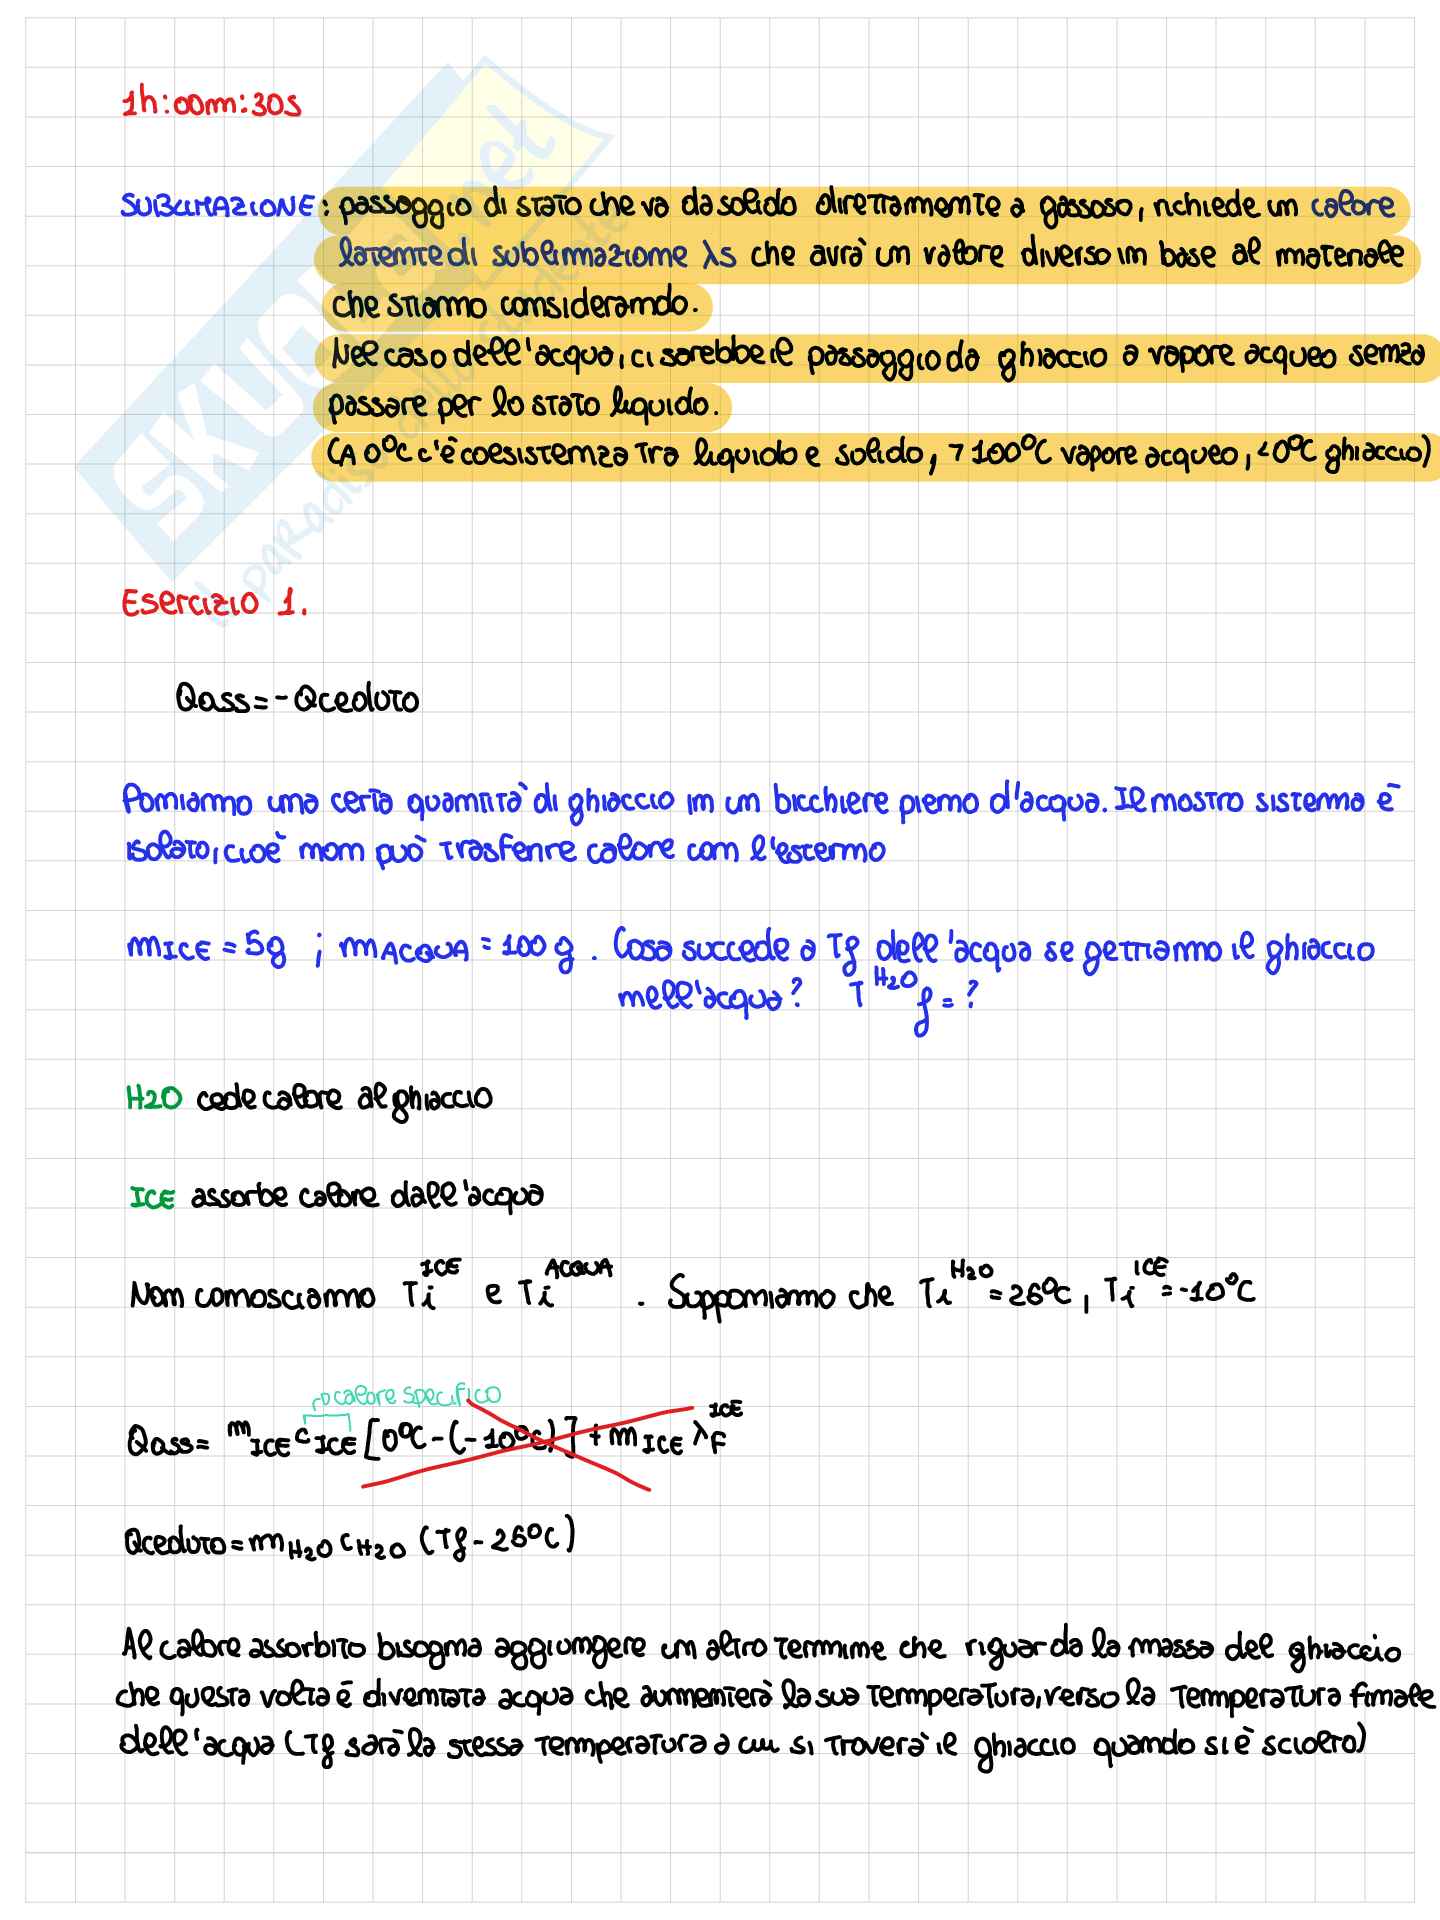 1h:00m:30s
SUBLIMAZIONE: passaggio di stato che va da solido direttamente a gassoso, richiede un calore
latente di sublimazione λs che avrà un valore diverso in base al materiale
che stiamo considerando.
Nel caso dell'acqua, ci sarebbe il passaggio da ghiaccio a vapore acqueo senza
passare per lo stato liquido.
(A 0°C c'è coesistenza tra liquido e solido, >100°C vapore acqueo, <0°C ghiaccio)
Esercizio 1.
Qass = - Qceduto
Poniamo una certa quantità di ghiaccio in un bicchiere pieno d'acqua. Il nostro sistema è
isolato, cioè non può trasferire calore con l'esterno
mICE = 5g ; mACQUA = 100g. Cosa succede a Tf dell'acqua se gettiamo il ghiaccio
nell'acqua? T H2O f = ?
H2O cede calore al ghiaccio
ICE assorbe calore dall'acqua
Non conosciamo Ti ICE e Ti ACQUA. Supponiamo che Ti H2O = 26°C, Ti ICE = -10°C
calore specifico
Qass = mICE cICE [0°C - (-10°C)] + mICE λF ICE
Qceduto = mH2O cH2O (Tf - 26°C)
Al calore assorbito bisogna aggiungere un altro termine che riguarda la massa del ghiaccio
che questa volta è diventata acqua che aumenterà la sua temperatura, verso la temperatura finale
dell'acqua (Tf sarà la stessa temperatura a cui si troverà il ghiaccio quando si è sciolto)
SKUOLA.net
il paradiso dello studente